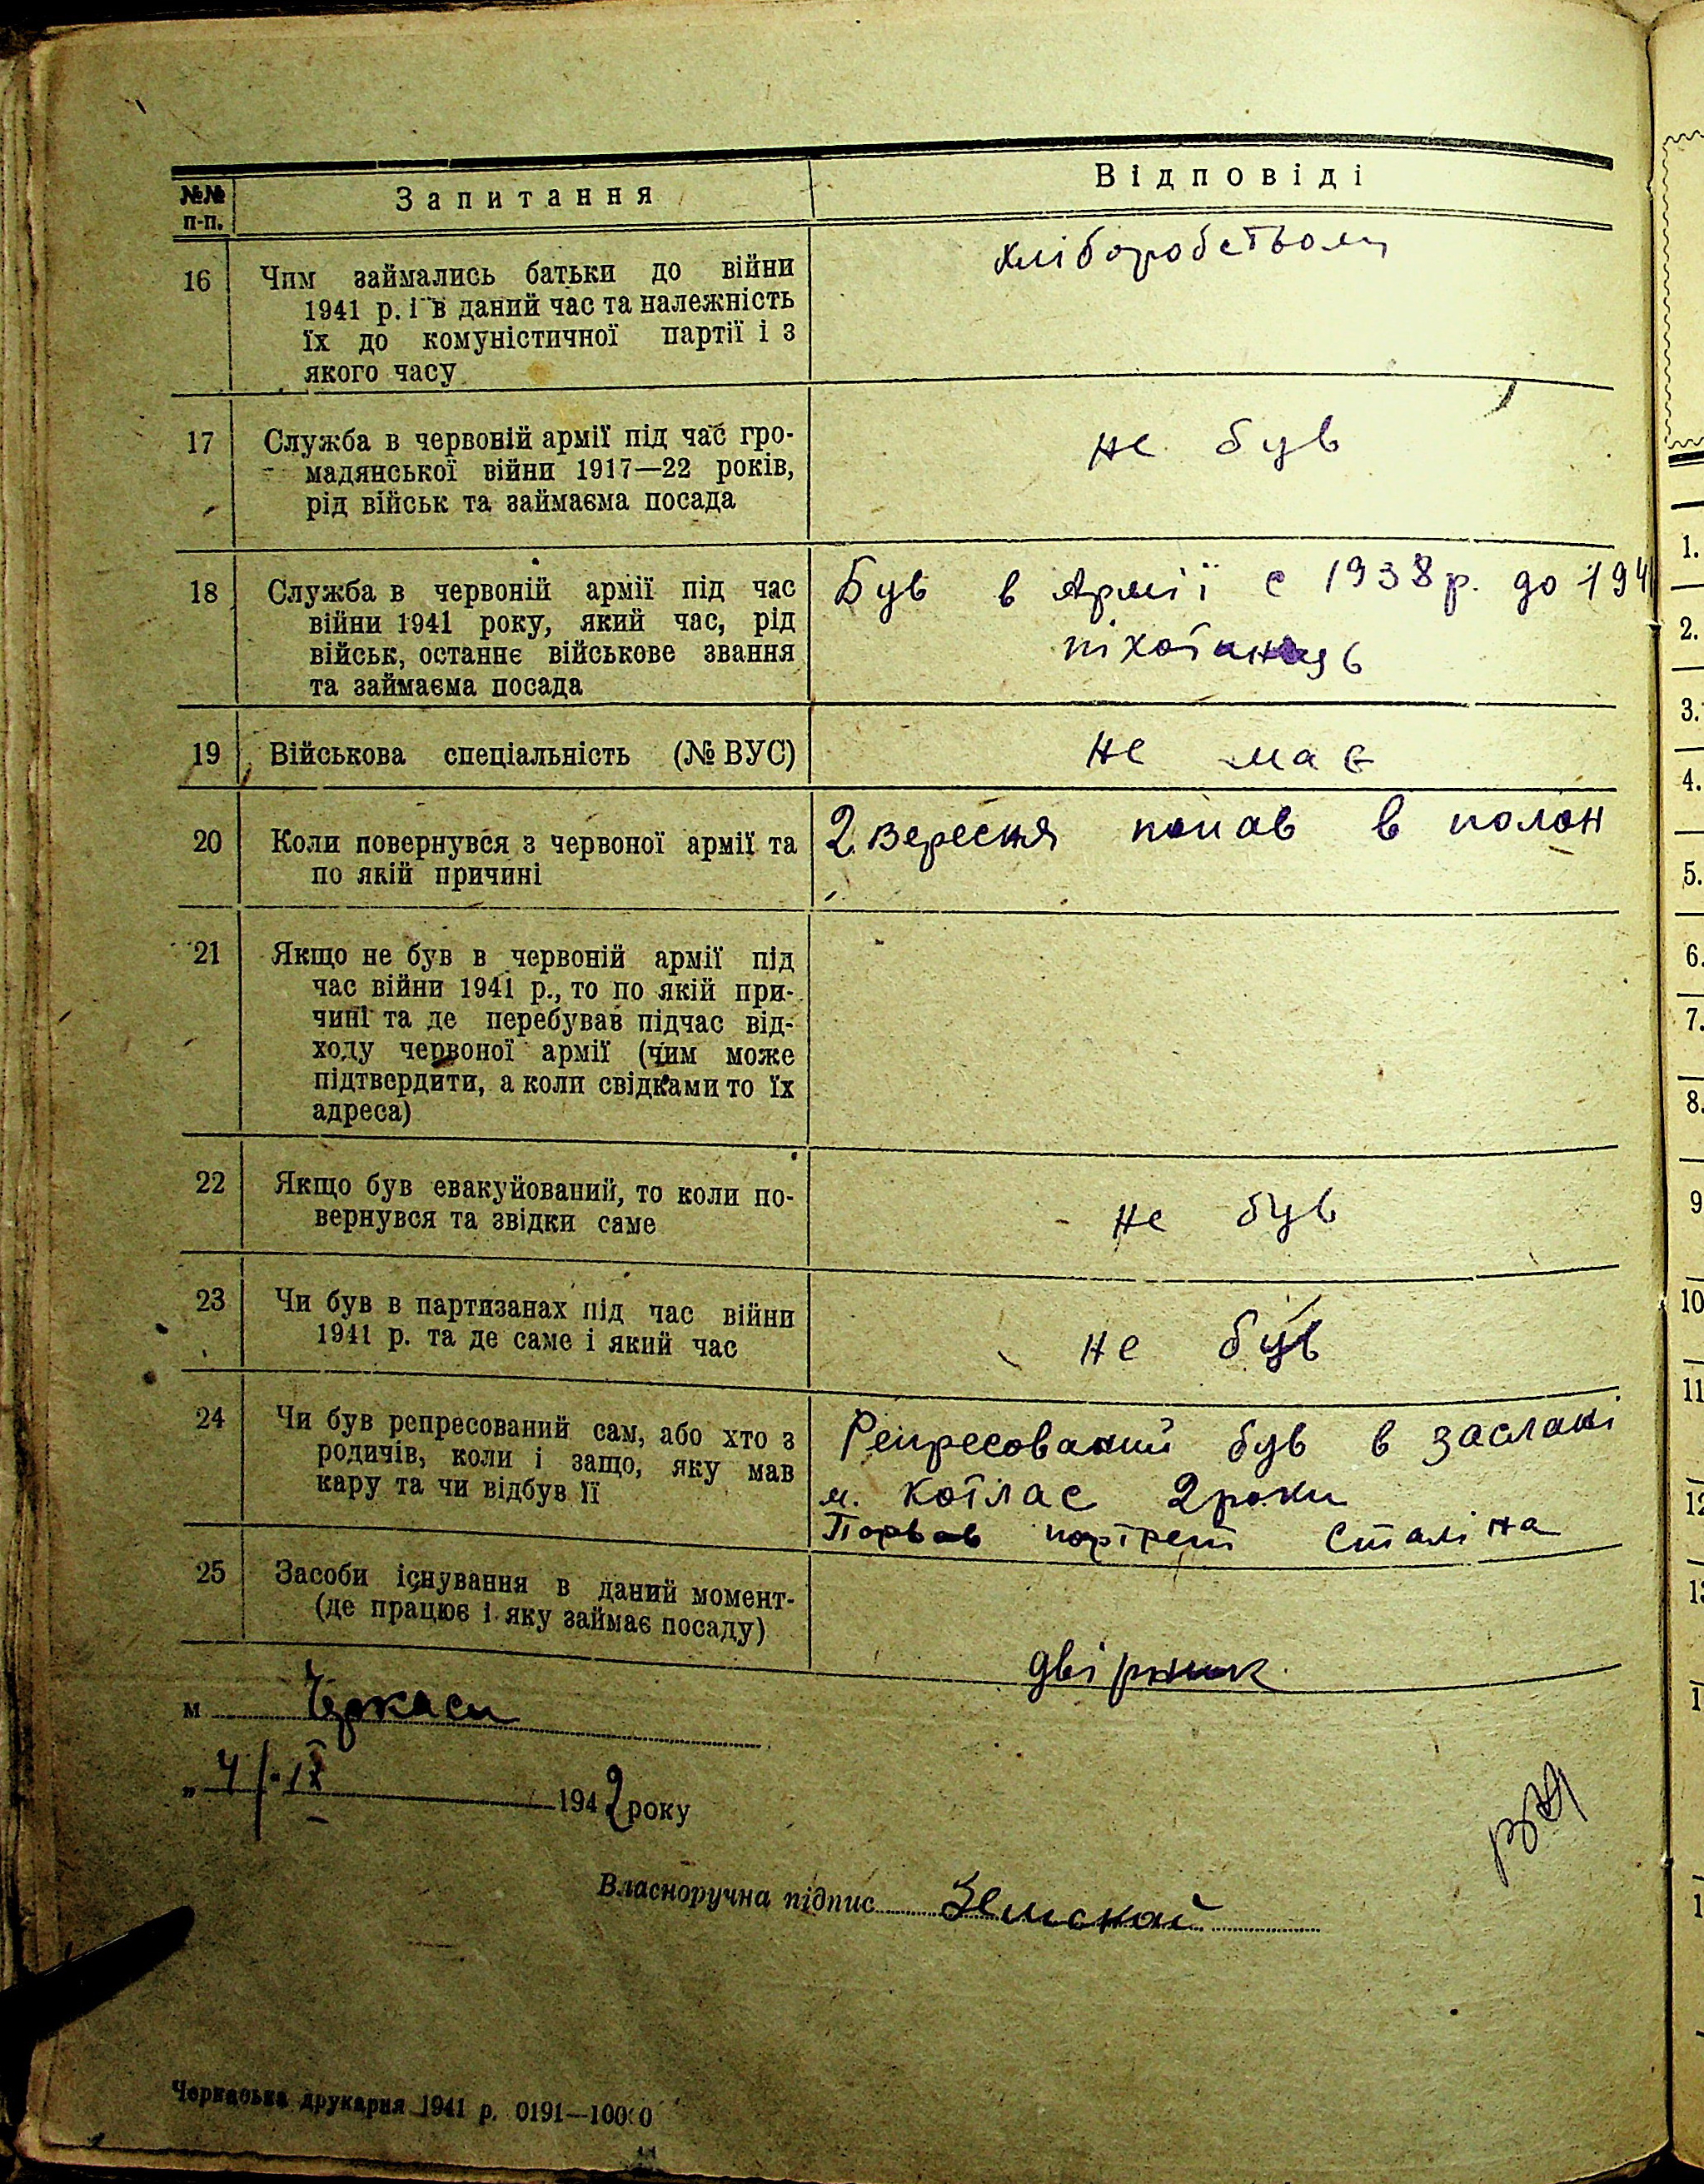 №№ п-п.
Запитання
Відповіді
16
Чим займались батьки до війни
1941 р. і в даний час та належність
їх до комуністичної партії і з
якого часу
хліборобством
17
Служба в червоній армії під час гро-
мадянської війни 1917—22 років,
рід військ та займаєма посада
не був
18
Служба в червоній армії під час
війни 1941 року, який час, рід
військ, останнє військове звання
та займаєма посада
Був в Армії с 1938 р. до 194
піхотинець
19
Військова спеціальність (№ ВУС)
не має
20
Коли повернувся з червоної армії та
по якій причині
2. вересня попав в полон
21
Якщо не був в червоній армії під
час війни 1941 р., то по якій при-
чині та де перебував підчас від-
ходу червоної армії (чим може
підтвердити, а коли свідками то їх
адреса)
22
Якщо був евакуйований, то коли по-
вернувся та звідки саме
не був
23
Чи був в партизанах під час війни
1941 р. та де саме і який час
не був
24
Чи був репресований сам, або хто з
родичів, коли і защо, яку мав
кару та чи відбув її
Репресований був в заслані
м. котлас 2 роки
Порвав портрет Сталіна
25
Засоби існування в даний момент-
(де працює і яку займає посаду)
двірник
м Черкаси
„ 4/ - ІХ 1942 року
Власноручна підпис Земской
Черкаська друкарня 1941 р. 0191—10000
1.
2.
3.
4.
5.
6.
7.
8.
9
10
11
12